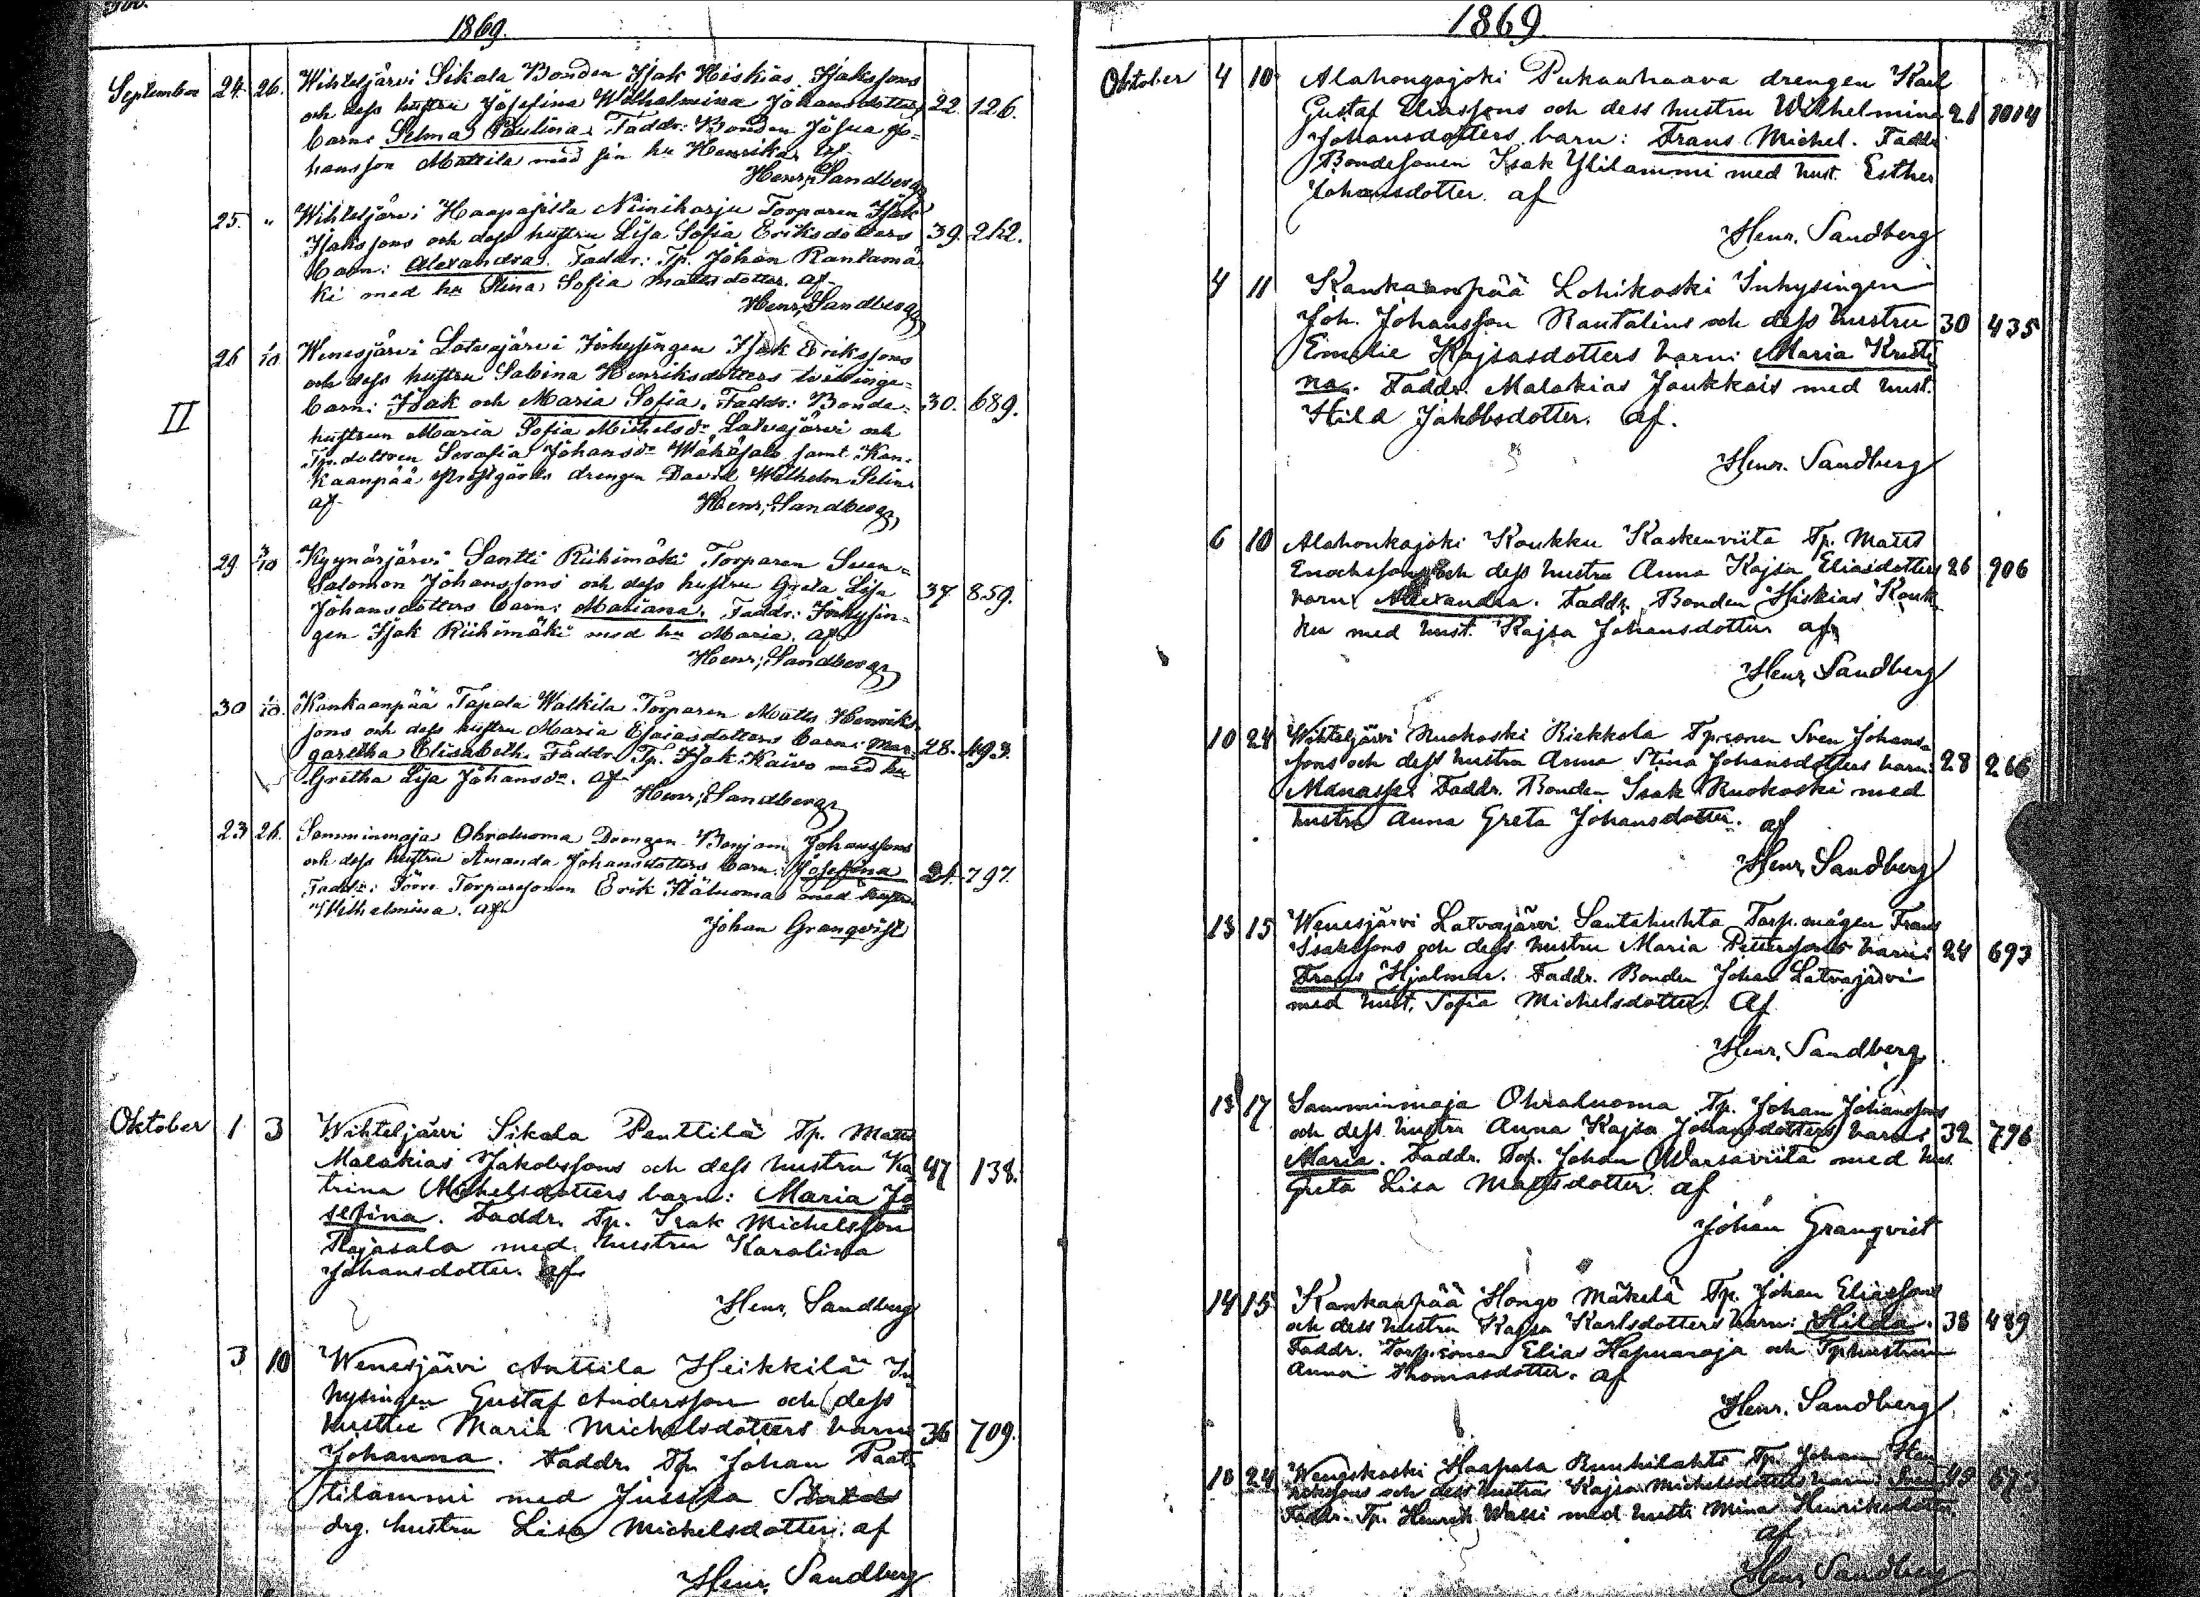 1869.
September 24. 26. Wihteljärvi Sikala Bonden Isak Hiskias Isakssons
och dess hustru Josefina Wilhelmina Johansdotters 22. 126.
barn: Selma Paulina. Faddr: Bonden Josua Jo-
hansson Mattila med sin hu Henrika, af
Henr; Sandberg
25. " Wihteljärvi Haapasilta Niiniharju Torparen Isak
Isakssons och dess hustru Lisa Sofia Eriksdotters 39. 252.
barn: Alexandra. Faddr: Tp. Johan Rantamä-
ki med hu Stina Sofia Mattsdotter. af
Henr; Sandberg
26 1/10 Wenesjärvi Latvajärvi Inhysingen Isak Erikssons
och dess hustru Sabina Henriksdotters tvillinge-
II barn: Isak och Maria Sofia. Faddr: Bonde- 30. 689.
hustrun Maria Sofia Michelsdr Latvajärvi och
Tp. dottren Serafia Johansdr Wähäsalo samt Kan-
kaanpää Prestgårds drengen David Wilhelm Selin.
af
Henr; Sandberg
29 3/10 Kyynärjärvi Santti Riihimäki Torparen Sven-
Salomon Johanssons och dess hustru Greta Lisa 37 859.
Johansdotters barn: Mariana. Faddr: Inhysin-
gen Isak Riihimäki med hu Maria. af
Henr; Sandberg
30 1/10. Kankaanpää Tapala Walkila Torparen Matts Henriks-
sons och dess hustru Maria Esaiasdotters barn: Mar- 28. 493.
garetha Elisabeth. Faddr. Tp. Isak Kaivo med hu
Gretha Lisa Johansdr. af
Henr; Sandberg
23 26. Samminmaja Ohraluoma Drengen Benjam. Johanssons
och dess hustru Amanda Johansdotters barn: Josefina 24. 797.
Faddr: Torparesonen Erik med hustru
Wilhelmina. af
Johan Granqvist
Oktober 1 3 Wihteljärvi Sikala Penttilä Tp. Matts
Malakias Jakobssons och dess hustru Ka- 47 138.
trina Michelsdotters barn: Maria Jo-
sefina. Faddr. Tp. Isak Michelsson
Rajasala med hustru Karolina
Johansdotter. af
Henr. Sandberg
3 10 Wenesjärvi Anttila Heikkilä In-
hysingen Gustaf Andersson och dess
hustru Maria Michelsdotters barn 36 709.
Johanna. Faddr. Tp. Johan Paat-
tilammi med Jussila
drg. hustru Lisa Michelsdotter. af
Henr. Sandberg
1869.
Oktober 4 10 Alahongajoki Pukaahaava drengen Karl
Gustaf Eliassons och dess hustru Wilhelmina 21 1014
Johansdotters barn: Frans Michel. Faddr
Bondesonen Isak Ylilammi med hust. Esther
Johansdotter. af
Henr. Sandberg
4 11 Kankaanpää Lohikoski Inhysingen
Joh. Johansson Rautalins och dess hustru 30 435
Emelie Kajsasdotters barn: Maria Kristi
na. Faddr. Malakias Jaukkais med hust.
Hild Jakobsdotter. af.
Henr. Sandberg
6 10 Alahonkajoki Koukku Kaskenviita Tp. Matts
Enochssons och dess hustru Anna Kajsa Eliasdotters 26 906
barn: Alexandra. Faddr. Bonden Hiskias Kouk-
ku med hust. Kajsa Johansdotter af
Henr. Sandberg
10 24 Wihteljärvi Ruokoski Riekkola Tpsonen Sven Johans-
sons och dess hustru Anna Stina Johansdotters barn: 28 266
Manasse. Faddr. Bonden Isak Ruokoski med
hustru Anna Greta Johansdotter. af
Henr. Sandberg
13 15 Wenesjärvi Latvajärvi Santahuhta Torp. mågen Frans
Isakssons och dess hustru Maria Pettersdotters barn: 24 693
Frans Hjalmar. Faddr. Bonden Johan Latvajärvi
med hust. Sofia Michelsdotter. af
Henr. Sandberg
13 17 Samminmaja Ohraluoma Tp. Johan Johanssons
och dess hustru Anna Kajsa Johansdotters barn: 32 796
Maria. Faddr. Tp. Johan Warsaviita med hus.
Greta Lisa Mattsdotter. af
Johan Granqvist
14 15 Kankaapää Hongo Mäkelä Tp. Johan Eliassons
och dess hustru Kajsa Karlsdotters barn: Hilda. 38 489
Faddr. Torp. sonen Elias Hapuaroja och Tphustrun
Anna Thomasdotter. af
Henr. Sandberg
18 24 Haapala Ruuhilahti Tp. Johan Hen
rikssons och dess hustru Kajsa Michelsdotters barn: 49
Faddr. Tp. Henrik med hustr. Mina Henriksdotter.
af
Henr. Sandberg